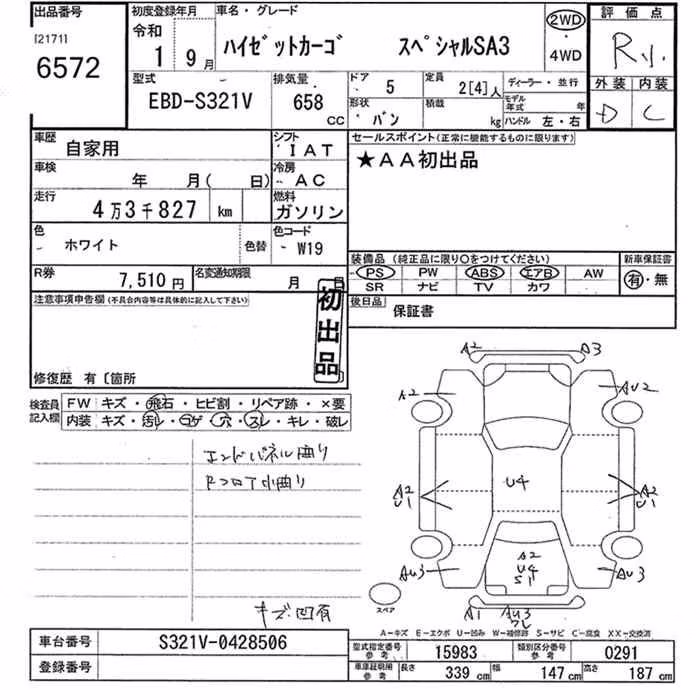 出品番号
[2171]
6572
初度登録年月
令和
1 9月
車名・グレード
ハイゼットカーゴ スペシャルSA3
2WD
・
4WD
評価点
R
外装 内装
D C
型式
EBD-S321V
排気量
658
CC
ドア 5
形状 バン
定員 2[4]人
積載 kg
ディーラー・並行
モデル年式 年
ハンドル 左・右
車歴
自家用
シフト
IAT
車検
年 月( 日)
冷房
AC
走行
4万3千827 km
燃料
ガソリン
色
ホワイト
色替
色コード
W19
R券
7,510円
名変通知期限
月 日
セールスポイント(正常に機能するものに限ります)
★AA初出品
装備品 (純正品に限り○をつけてください)
PS PW ABS エアB AW
SR ナビ TV カワ
新車保証書
有・無
後日品
保証書
注意事項申告欄 (不具合内容等は具体的に記入して下さい)
初出品
修復歴 有 〔箇所
検査員
記入欄
FW キズ・飛石・ヒビ割・リペア跡・×要
内装 キズ・汚レ・コゲ・穴・スレ・キレ・破レ
エンドパネル曲り
Rフロア小曲り
キズ凹有
A2 A3
A2 AU2
A2
U1
U4
A2
U1
AU3
A2
U4
S1
AU3
スペア
A1 AU3
ワレ
A-キズ E-エクボ U-凹み W-補修跡 S-サビ C-腐食 XX-交換済
車台番号
S321V-0428506
登録番号
型式指定番号
参考
15983
類別区分番号
参考
0291
車庫証明用
参考
長さ 339 cm 幅 147 cm 高さ 187 cm